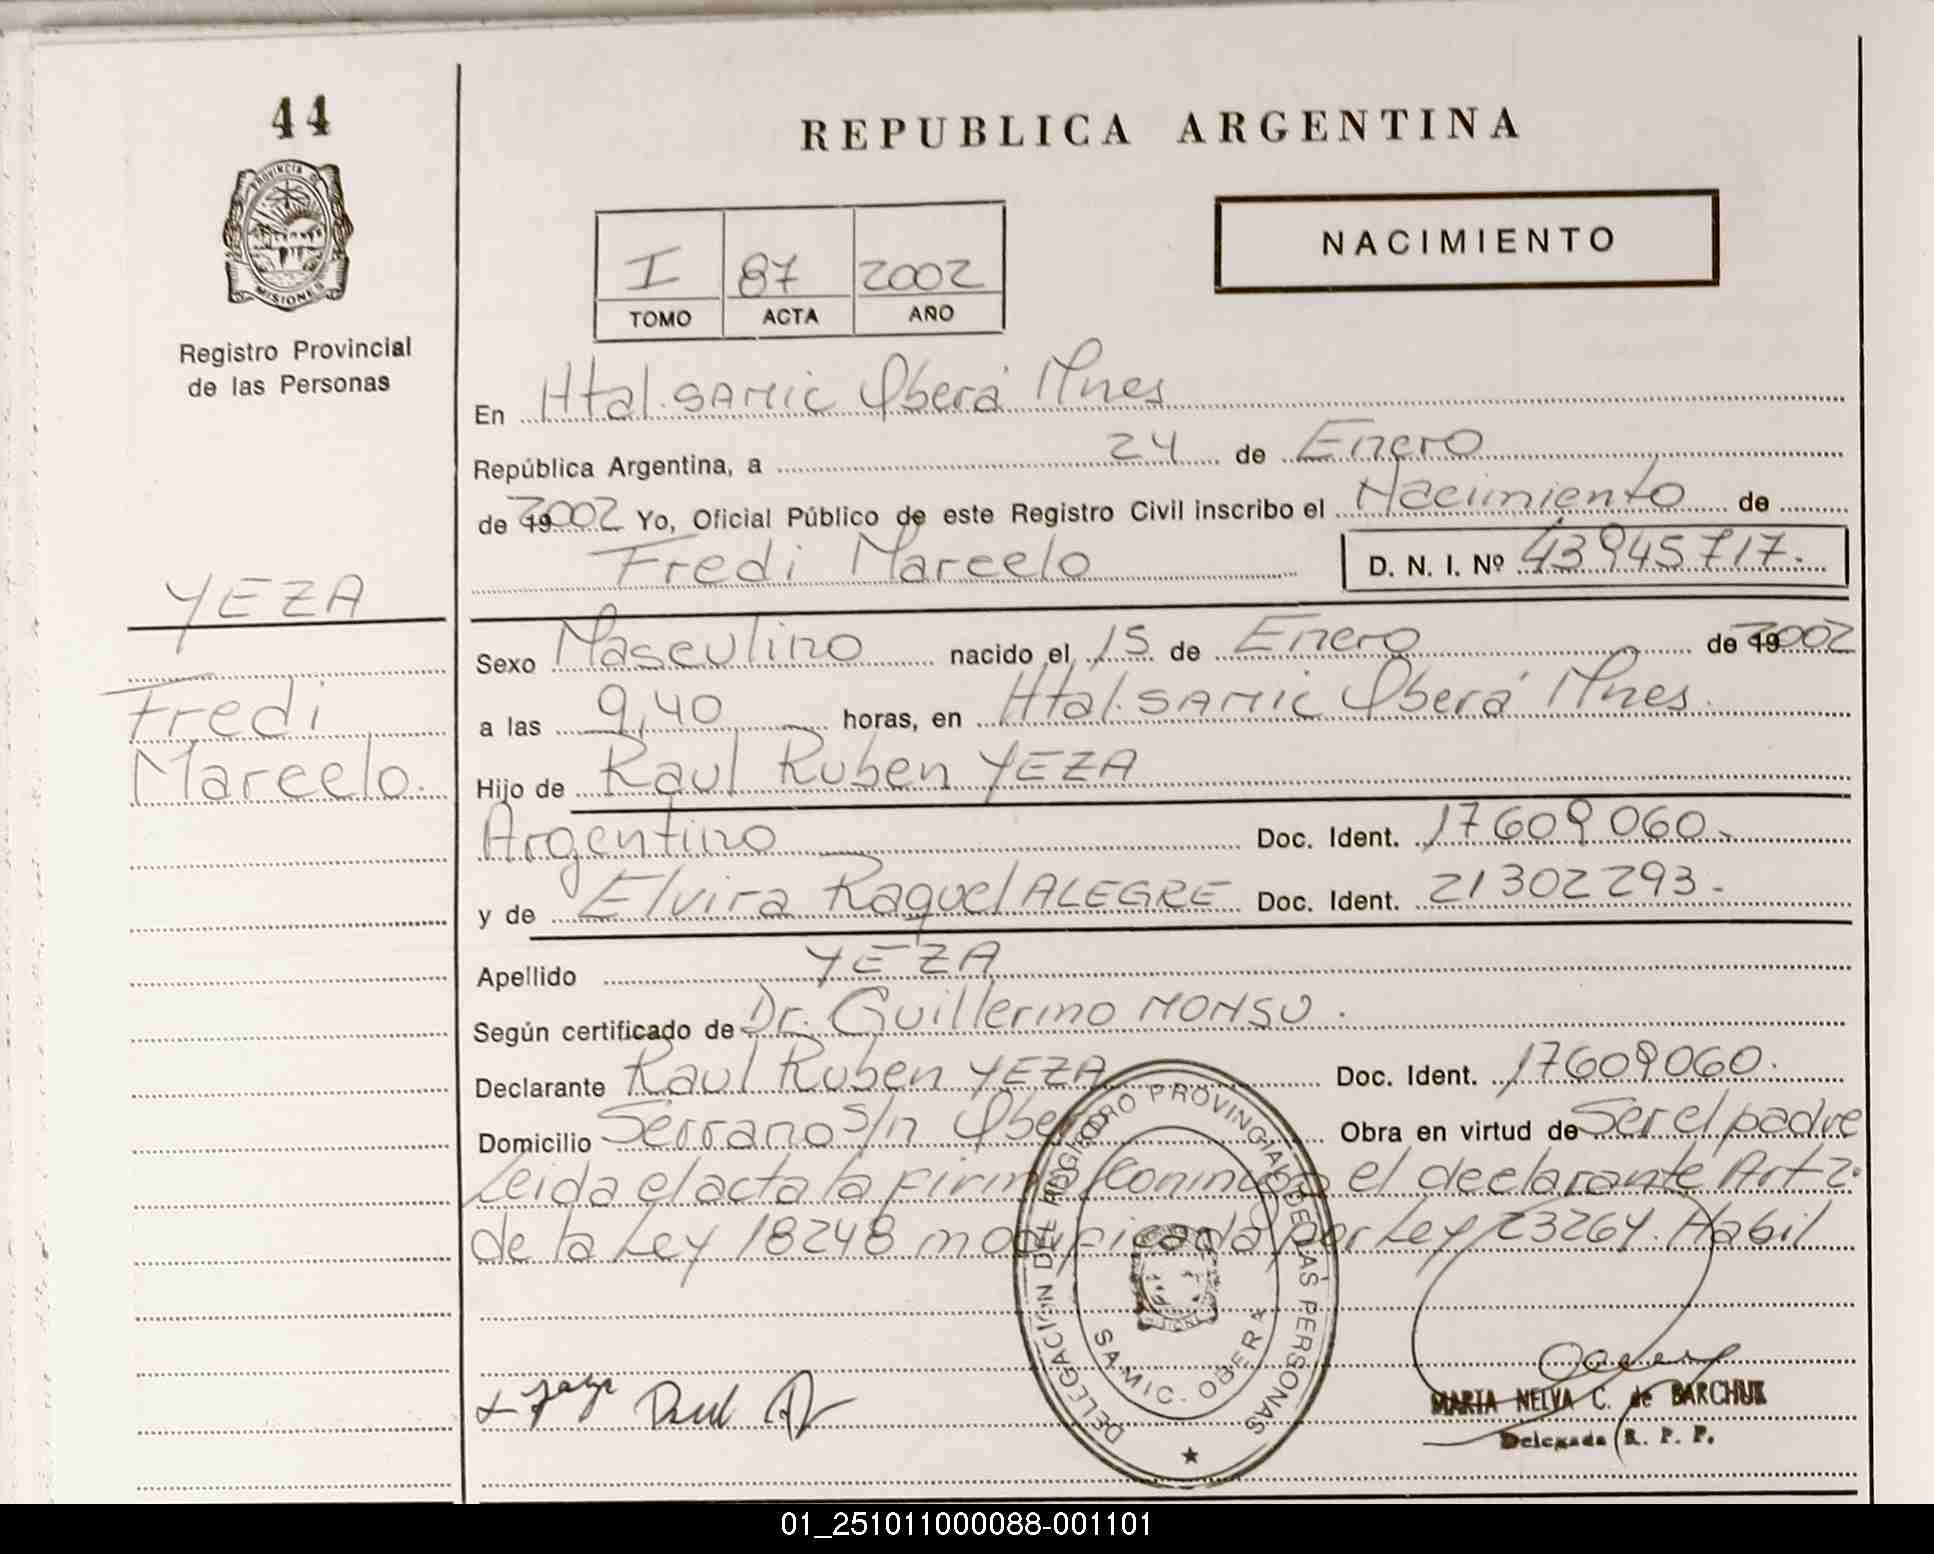 44
PROVINCIA DE
MISIONES
Registro Provincial
de las Personas
YEZA
Fredi
Marcelo.
REPUBLICA ARGENTINA
I 87 2002
TOMO ACTA AÑO
NACIMIENTO
En Htal. SAMIC Oberá Mnes
República Argentina, a 24 de Enero
de 2002 Yo, Oficial Público de este Registro Civil inscribo el Nacimiento de
Fredi Marcelo D. N. I. Nº 43945717.
Sexo Masculino nacido el 15 de Enero de 2002
a las 9,40 horas, en Htal. SAMIC Oberá Mnes.
Hijo de Raul Ruben YEZA
Argentino Doc. Ident. 17609060.
y de Elvira Raquel ALEGRE Doc. Ident. 21302293.
Apellido YEZA
Según certificado de Dr. Guillermo MONSU.
Declarante Raul Ruben YEZA Doc. Ident. 17609060.
Domicilio Serrano s/n Oberá Obra en virtud de Ser el padre
Leida el acta la firma conmigo el declarante Art 2.
de la Ley 18248 modificada por Ley 23264. Habil
DELEGACION DEL REGISTRO PROVINCIAL DE LAS PERSONAS
SAMIC - OBERA
MARIA NELVA C. de BARCHUK
Delegada R. P. P.
01_251011000088-001101